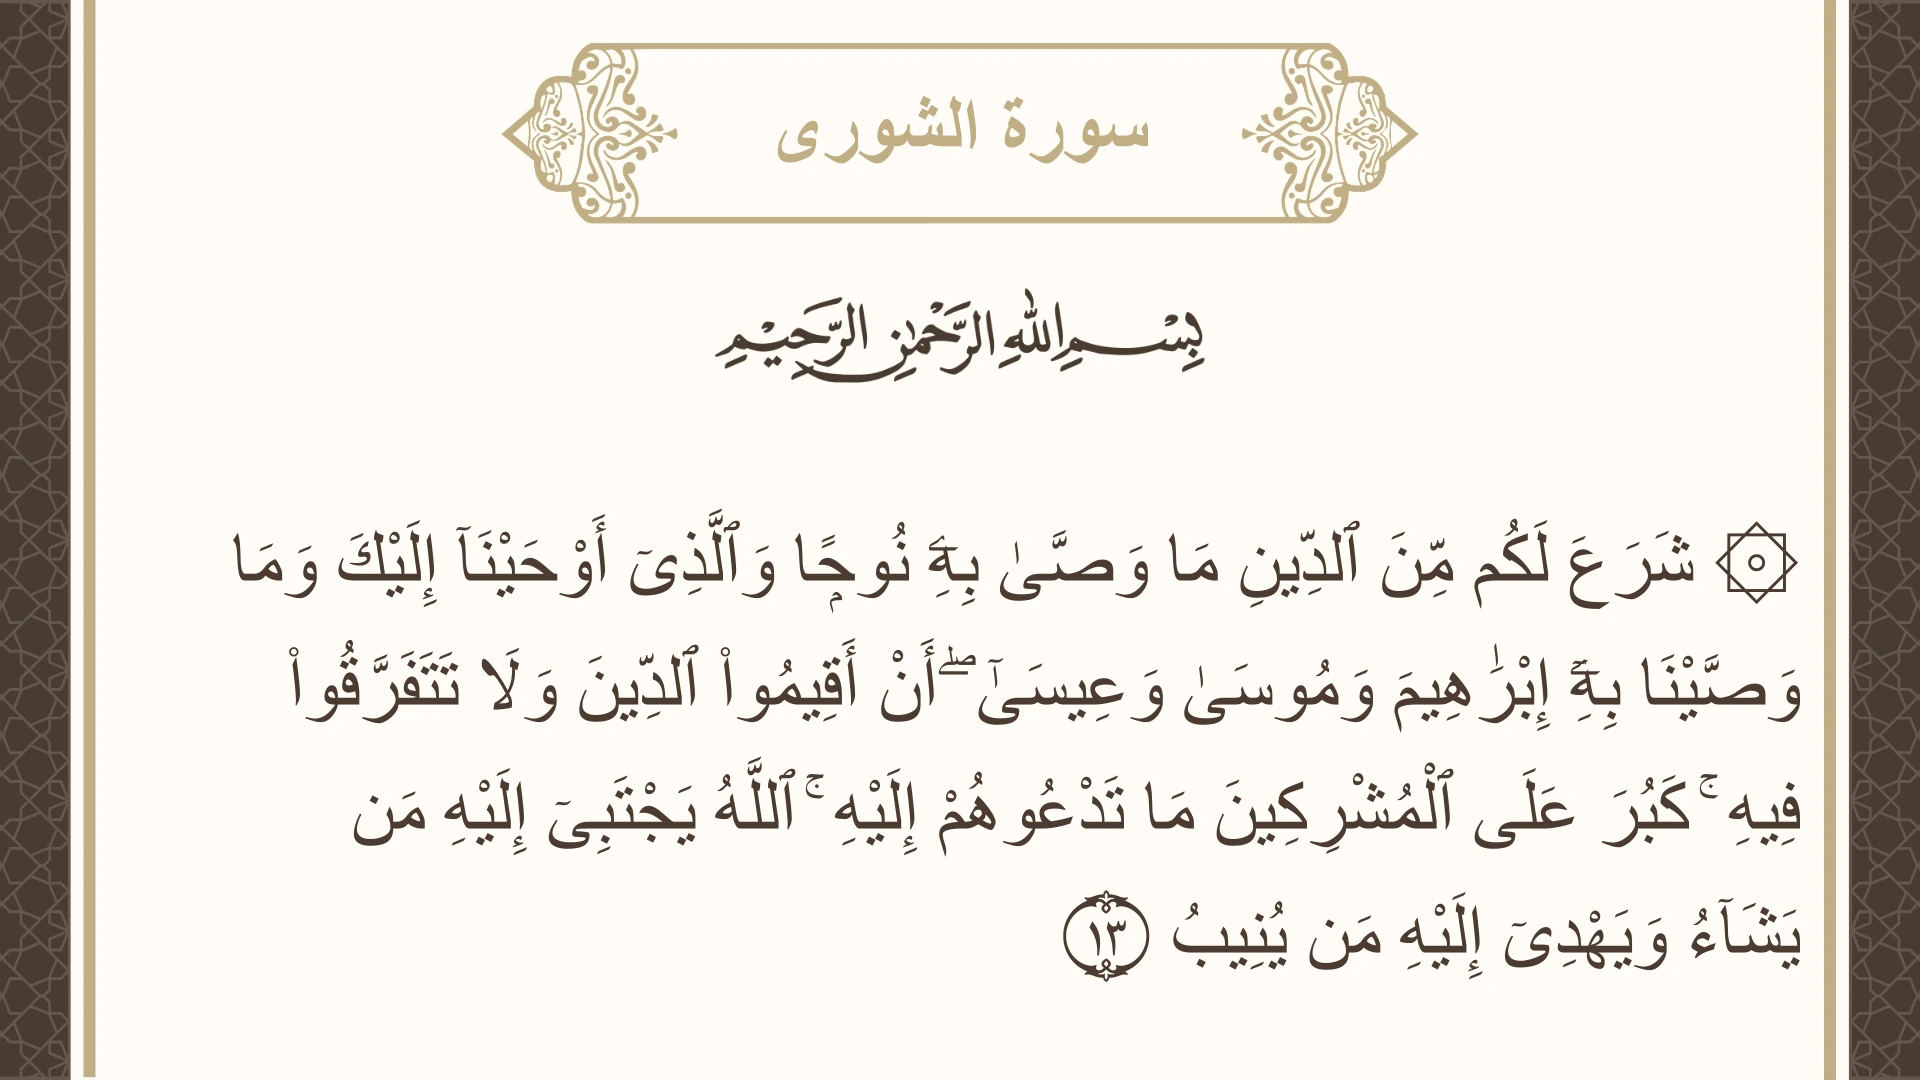 سورة الشورى
بِسْمِ اللهِ الرَّحْمٰنِ الرَّحِيْمِ
۞ شَرَعَ لَكُم مِّنَ ٱلدِّينِ مَا وَصَّىٰ بِهِۦٓ نُوحًۭا وَٱلَّذِىٓ أَوْحَيْنَآ إِلَيْكَ وَمَا
وَصَّيْنَا بِهِۦٓ إِبْرَٰهِيمَ وَمُوسَىٰ وَعِيسَىٰٓ ۖ أَنْ أَقِيمُوا۟ ٱلدِّينَ وَلَا تَتَفَرَّقُوا۟
فِيهِ ۚ كَبُرَ عَلَى ٱلْمُشْرِكِينَ مَا تَدْعُوهُمْ إِلَيْهِ ۚ ٱللَّهُ يَجْتَبِىٓ إِلَيْهِ مَن
يَشَآءُ وَيَهْدِىٓ إِلَيْهِ مَن يُنِيبُ ١٣